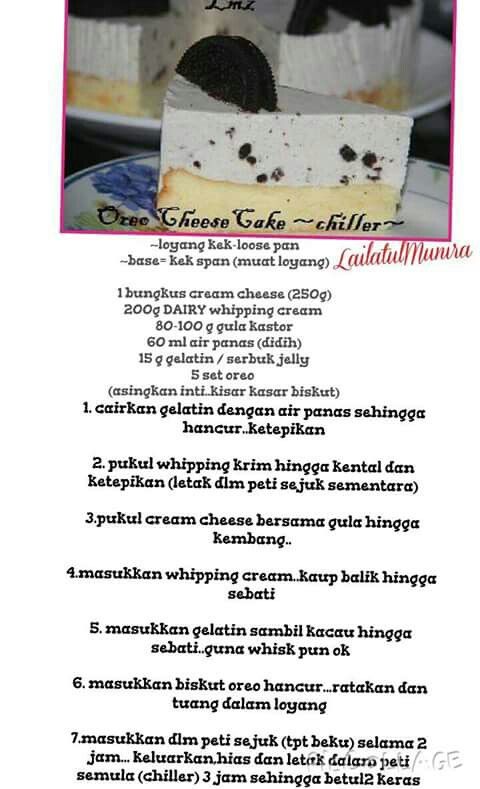 Lmz
Oreo Cheese Cake ~chiller~
~loyang kek-loose pan
~base= kek span (muat loyang)
LailatulMunira
1 bungkus cream cheese (250g)
200g DAIRY whipping cream
80-100 g gula kastor
60 ml air panas (didih)
15 g gelatin / serbuk jelly
5 set oreo
(asingkan inti..kisar kasar biskut)
1. cairkan gelatin dengan air panas sehingga
hancur..ketepikan
2. pukul whipping krim hingga kental dan
ketepikan (letak dlm peti sejuk sementara)
3.pukul cream cheese bersama gula hingga
kembang..
4.masukkan whipping cream..kaup balik hingga
sebati
5. masukkan gelatin sambil kacau hingga
sebati..guna whisk pun ok
6. masukkan biskut oreo hancur...ratakan dan
tuang dalam loyang
7.masukkan dlm peti sejuk (tpt beku) selama 2
jam... Keluarkan,hias dan letak dalam peti
semula (chiller) 3 jam sehingga betul2 keras
PIC COLLAGE